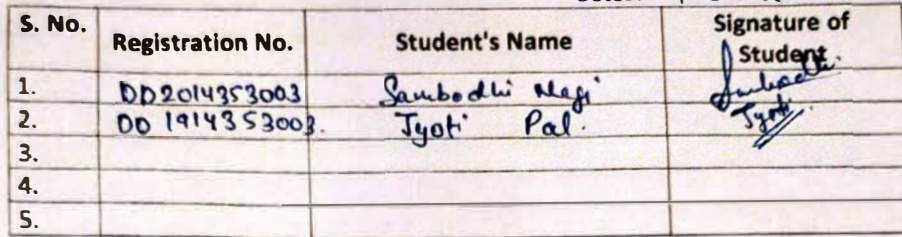 S. No. Registration No. Student's Name Signature of Student
1. DD2014353003 Sambodhi Negi Sambodhi.
2. DD 1914353003. Jyoti Pal. Jyoti.
3.
4.
5.